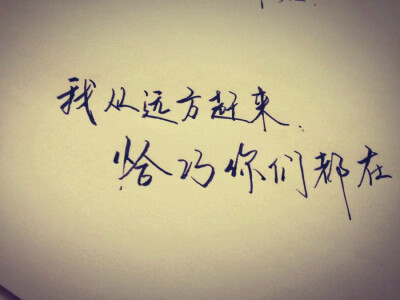 我从远方赶来.
恰巧你们都在